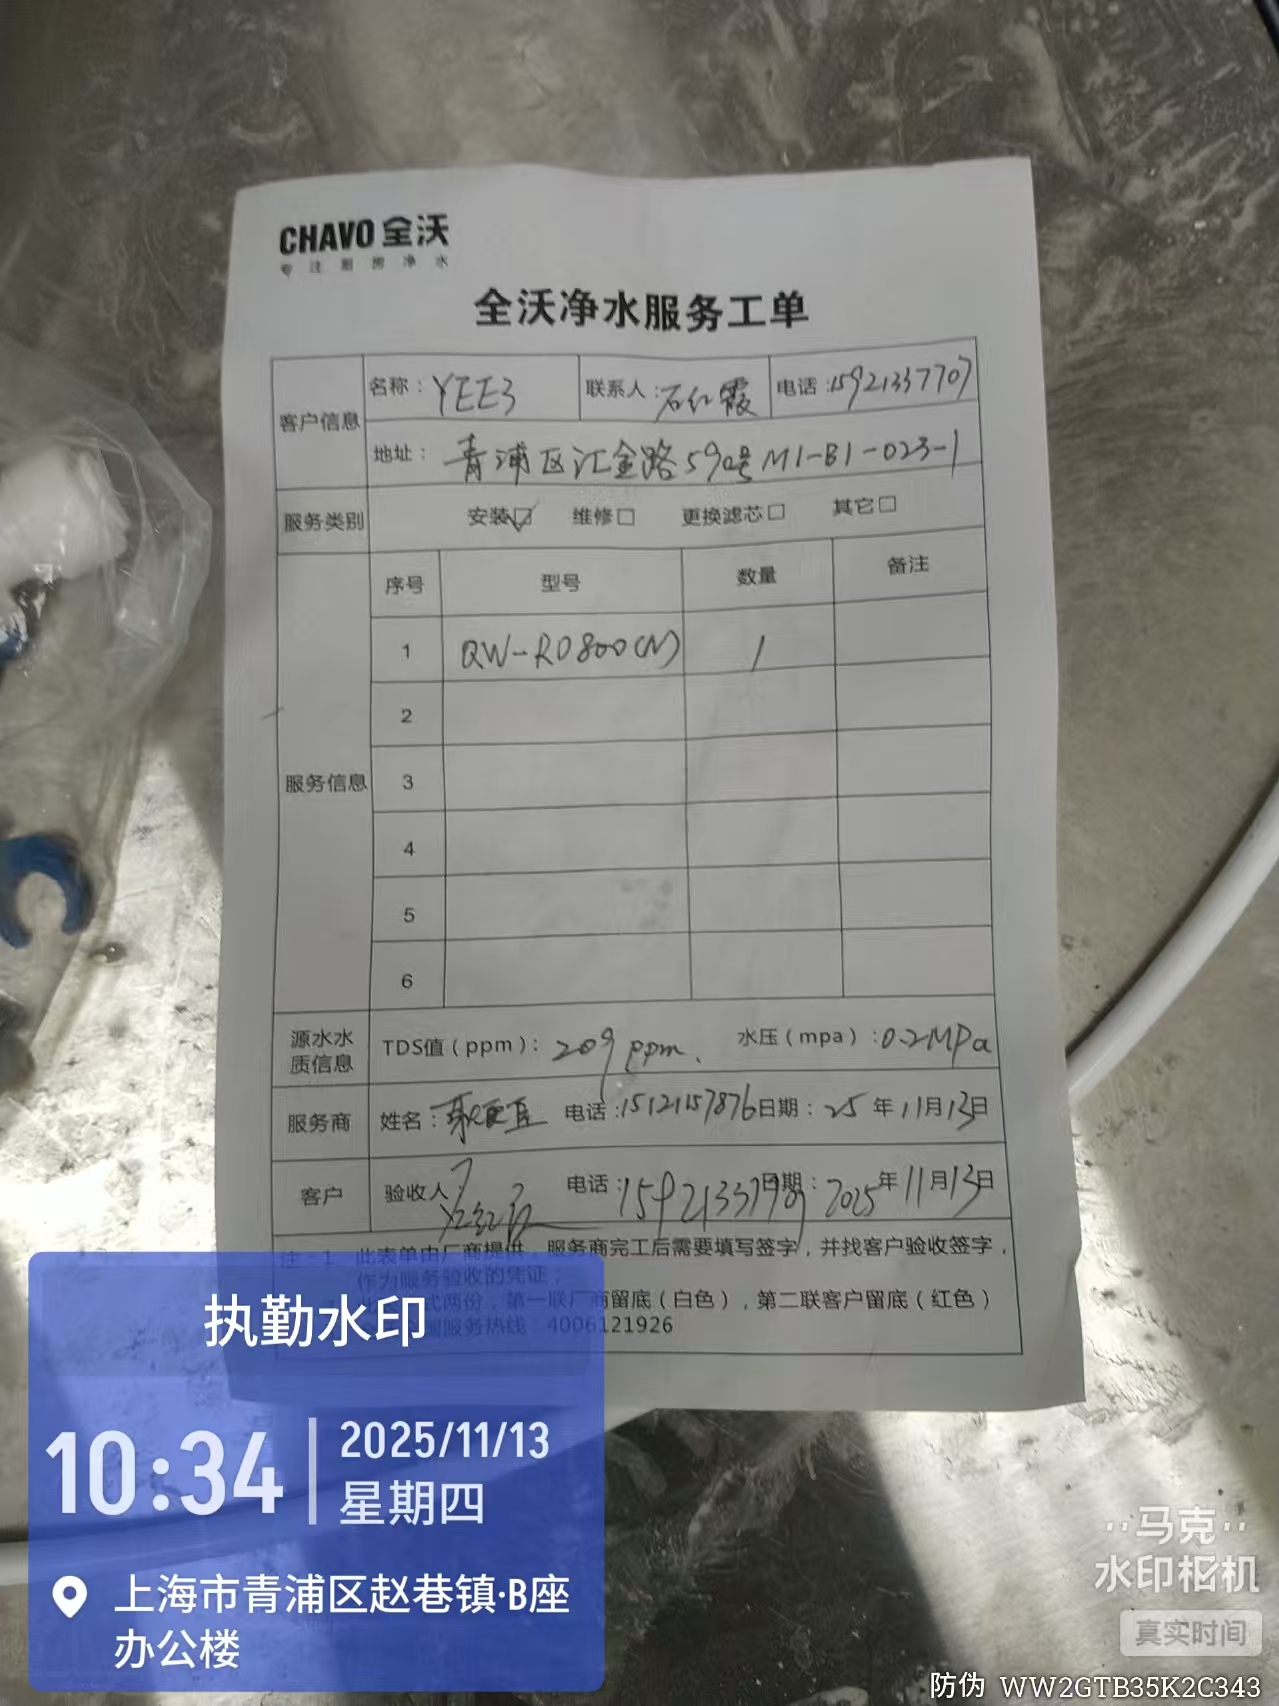 CHAVO 全沃
专注厨房净水
全沃净水服务工单
客户信息
名称：YEE3 联系人：石红霞 电话：15921337707
地址：青浦区汇金路590号M1-B1-023-1
服务类别 安装☑ 维修□ 更换滤芯□ 其它□
服务信息
序号 型号 数量 备注
1 QW-RO800(N) 1
2
3
4
5
6
源水水质信息 TDS值（ppm）：209ppm. 水压（mpa）：0.2MPa
服务商 姓名： 电话：15121157876 日期：25年11月13日
客户 验收人 电话： 日期：2025年11月13日
注：1 此表单由厂商提供，服务商完工后需要填写签字，并找客户验收签字，
作为服务验收的凭证；
式两份，第一联厂商留底（白色），第二联客户留底（红色）
服务热线：4006121926
执勤水印
10:34
2025/11/13
星期四
上海市青浦区赵巷镇·B座
办公楼
马克
水印相机
真实时间
防伪 WW2GTB35K2C343